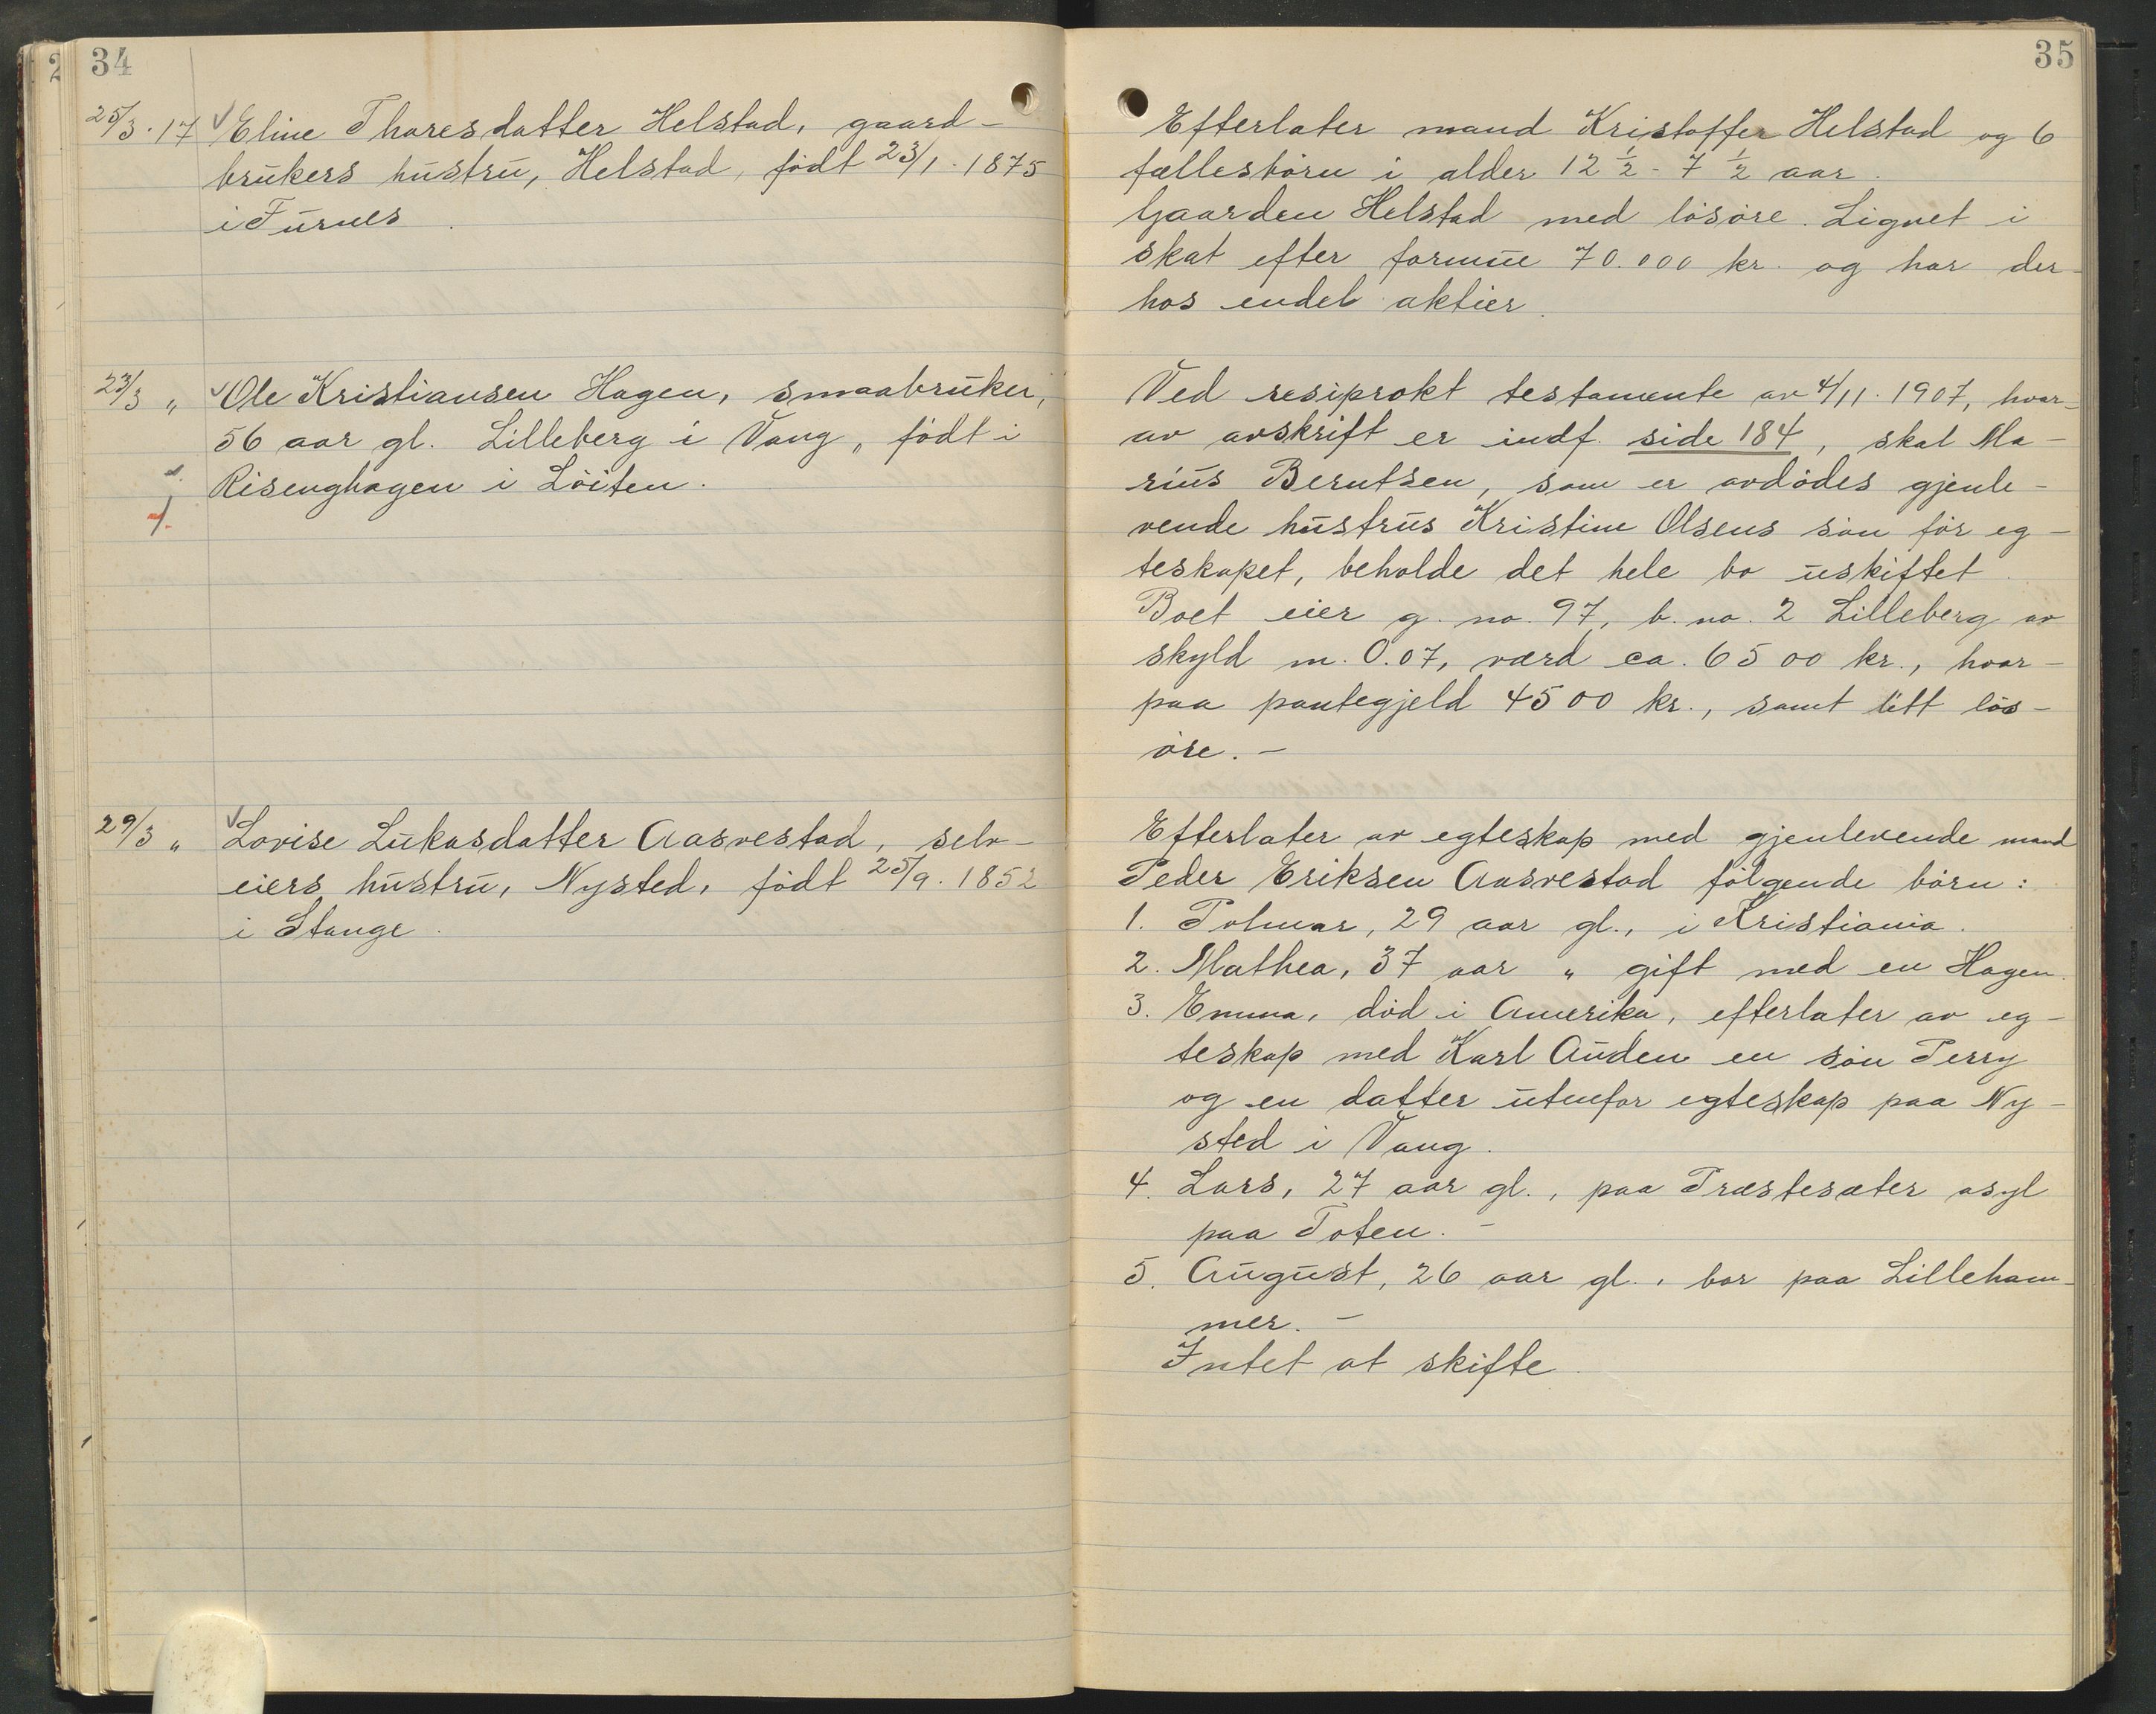 34
25/3.17 Eline Thoresdatter Helstad, gaard-
brukers hustru, Helstad, født 23/1.1875
i Furnes.
23/3 " Ole Kristiansen Hagen, smaabruker,
56 aar gl. Lilleberg i Vang, født i
Risenghagen i Löiten.
29/3 " Lovise Lukasdatter Aasvestad, selv-
eiers hustru, Nysted, født 25/9.1852
i Stange.
35
Efterlater mand Kristoffer Helstad og 6
fællesbörn i alder 12 1/2 - 7 1/2 aar.
Gaarden Helstad med lösöre. Lignet i
skat efter formue 70.000 kr. og har der-
hos endel aktier.
Ved resiprokt testamente av 4/11.1907, hvor-
av avskrift er indf. side 184, skal Ma-
rius Berntsen, som er avdödes gjenle-
vende hustrus Kristine Olsens sön för eg-
teskapet, beholde det hele bo uskiftet.
Boet eier g. no. 97, b. no. 2 Lilleberg av
skyld m. 0.07, værd ca. 6500 kr., hvor-
paa pantegjeld 4500 kr., samt litt lös-
öre. -
Efterlater av egteskap med gjenlevende mand
Peder Eriksen Aasvestad fölgende börn:
1. Polmar, 29 aar gl., i Kristiania.
2. Mathea, 37 aar " gift med en Hagen.
3. Emma, död i Amerika, efterlater av eg-
teskap med Karl Auden en sön Perry
og en datter utenfor egteskap paa Ny-
sted i Vang.
4. Lars, 27 aar gl., paa Præstesæter asyl
paa Toten. -
5. August, 26 aar gl., bor paa Lilleham-
mer. -
Intet at skifte.